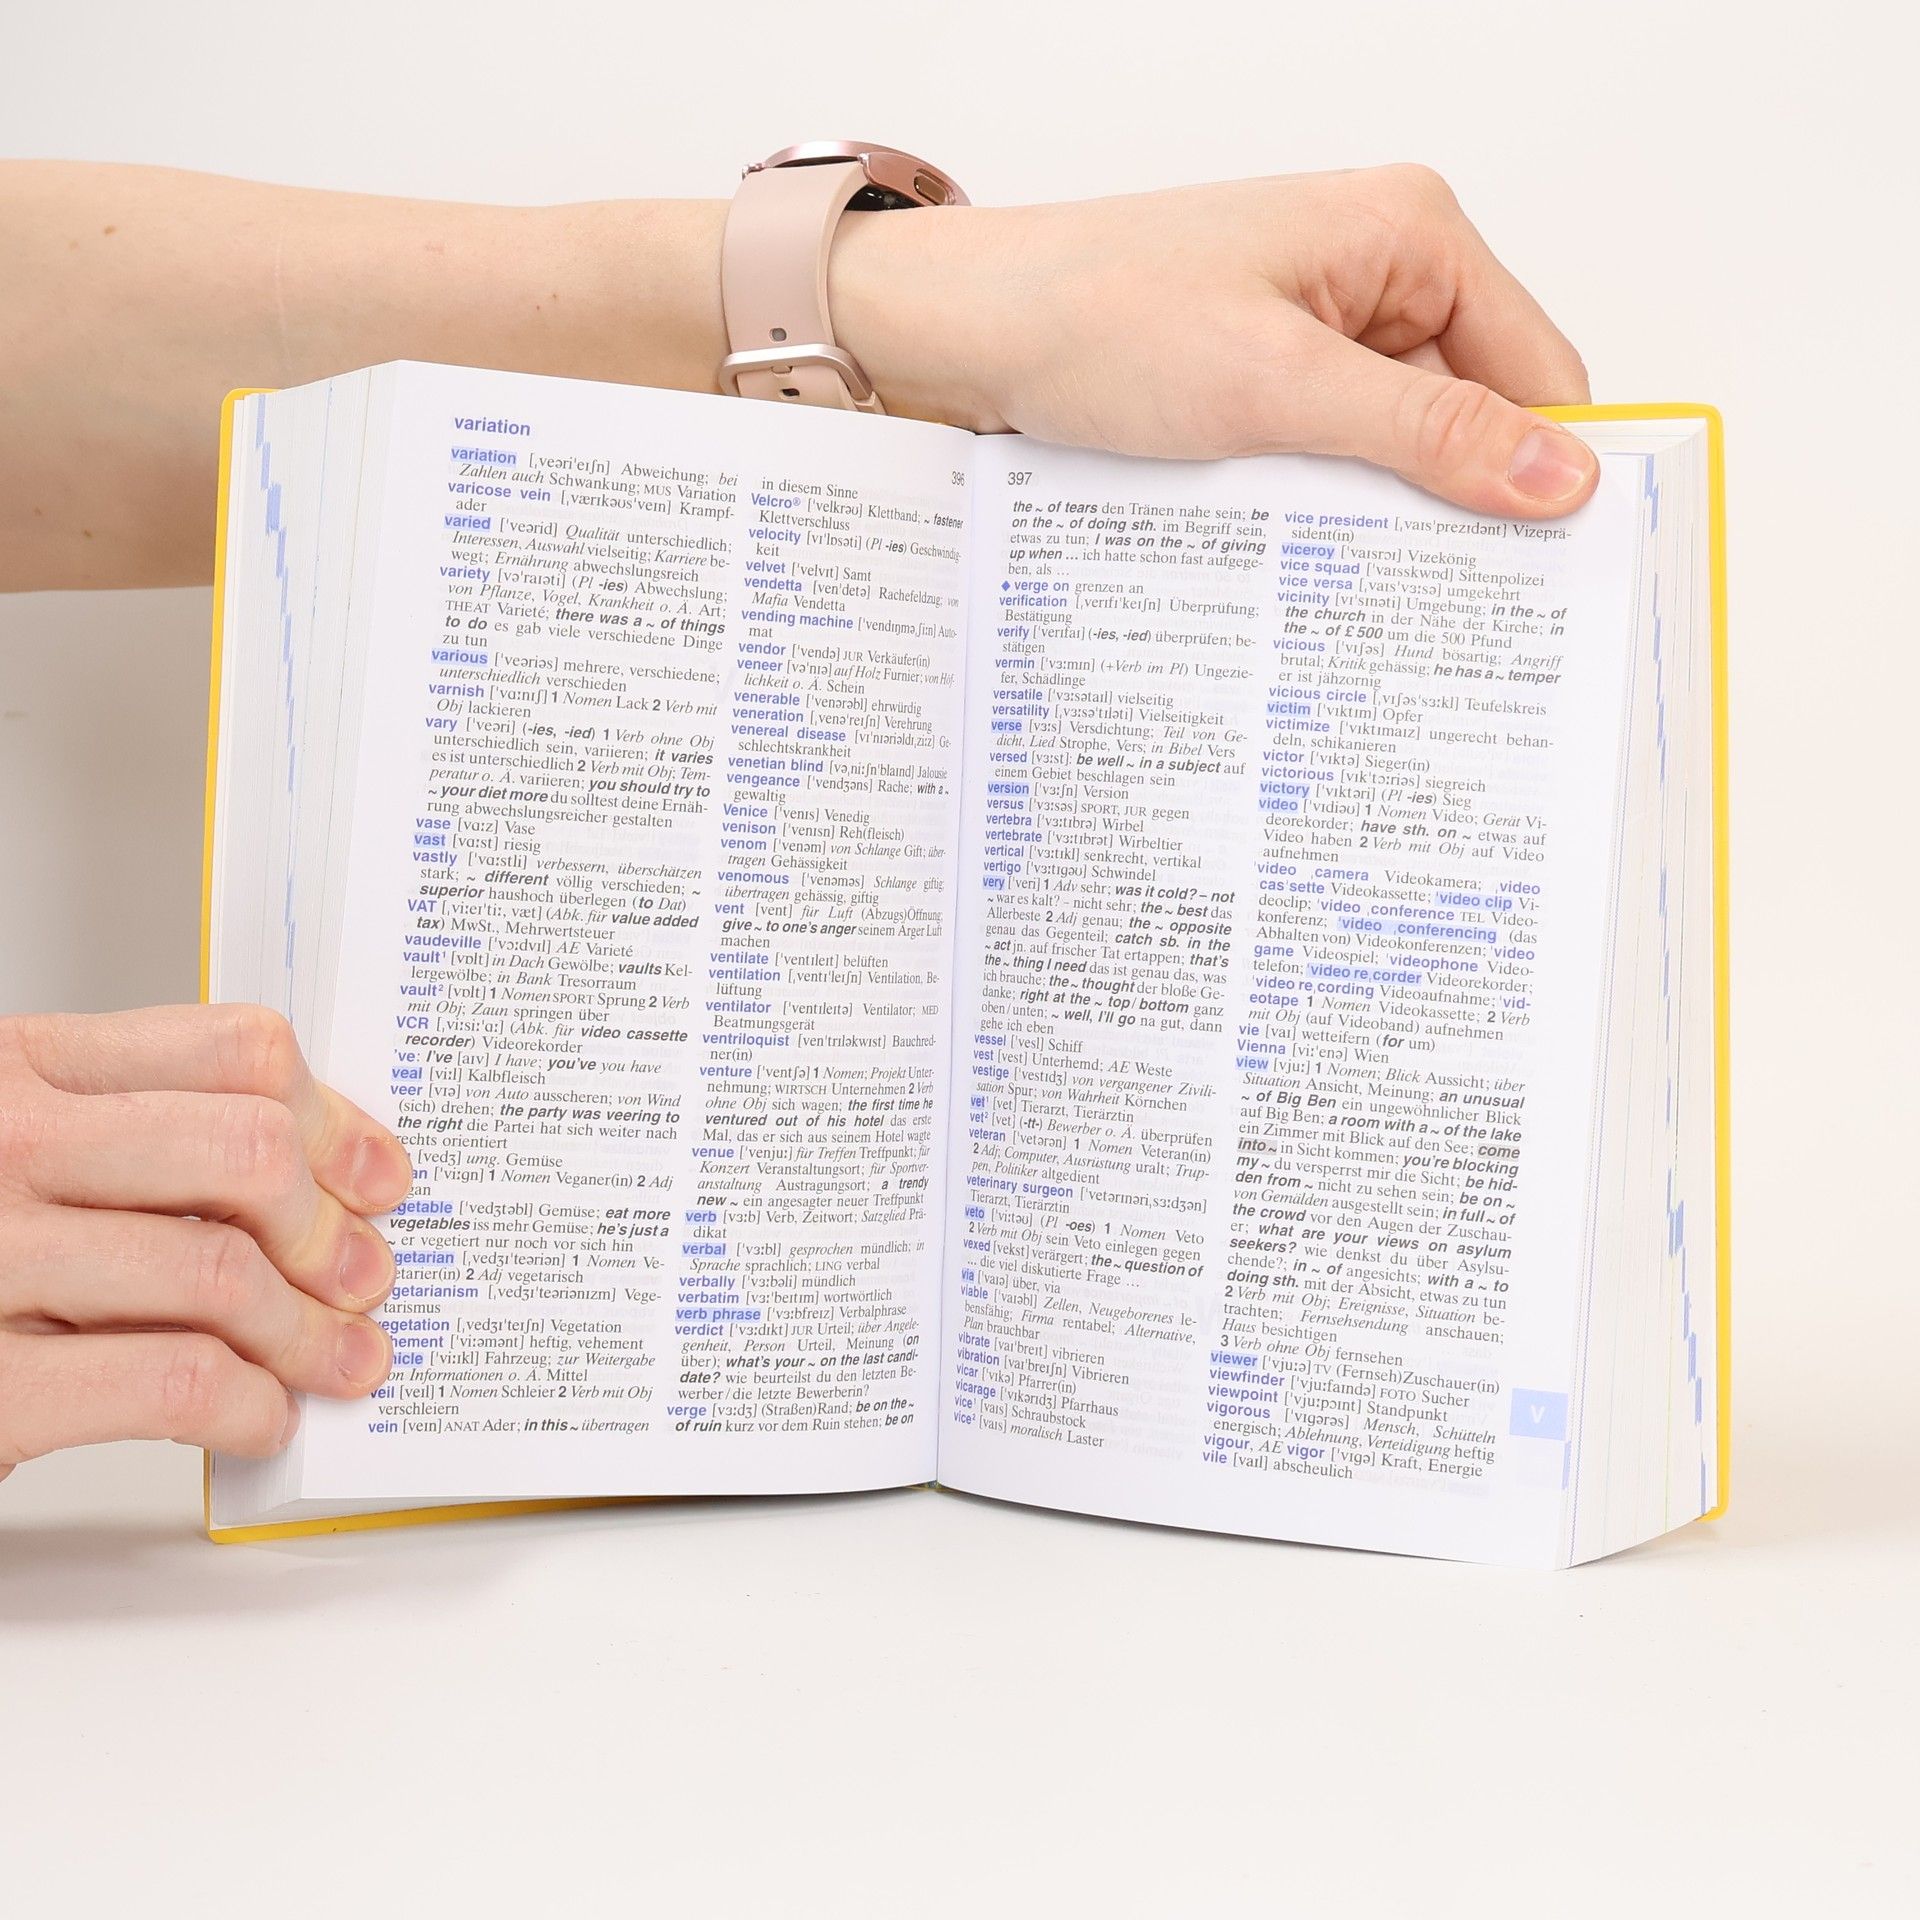 variation
variation [ˌveəriˈeɪʃn] Abweichung; bei
Zahlen auch Schwankung; MUS Variation
varicose vein [ˌværɪkəʊsˈveɪn] Krampf-
ader
varied [ˈveərɪd] Qualität unterschiedlich;
Interessen, Auswahl vielseitig; Karriere be-
wegt; Ernährung abwechslungsreich
variety [vəˈraɪəti] (Pl -ies) Abwechslung;
von Pflanze, Vogel, Krankheit o. Ä. Art;
THEAT Varieté; there was a ~ of things
to do es gab viele verschiedene Dinge
zu tun
various [ˈveəriəs] mehrere, verschiedene;
unterschiedlich verschieden
varnish [ˈvɑːnɪʃ] 1 Nomen Lack 2 Verb mit
Obj lackieren
vary [ˈveəri] (-ies, -ied) 1 Verb ohne Obj
unterschiedlich sein, variieren; it varies
es ist unterschiedlich 2 Verb mit Obj; Tem-
peratur o. Ä. variieren; you should try to
~ your diet more du solltest deine Ernäh-
rung abwechslungsreicher gestalten
vase [vɑːz] Vase
vast [vɑːst] riesig
vastly [ˈvɑːstli] verbessern, überschätzen
stark; ~ different völlig verschieden; ~
superior haushoch überlegen (to Dat)
VAT [ˌviːeɪˈtiː, væt] (Abk. für value added
tax) MwSt., Mehrwertsteuer
vaudeville [ˈvɔːdvɪl] AE Varieté
vault¹ [vɒlt] in Dach Gewölbe; vaults Kel-
lergewölbe; in Bank Tresorraum
vault² [vɒlt] 1 Nomen SPORT Sprung 2 Verb
mit Obj; Zaun springen über
VCR [ˌviːsiːˈɑː] (Abk. für video cassette
recorder) Videorekorder
've: I've [aɪv] I have; you've you have
veal [viːl] Kalbfleisch
veer [vɪə] von Auto ausscheren; von Wind
(sich) drehen; the party was veering to
the right die Partei hat sich weiter nach
rechts orientiert
[vedʒ] umg. Gemüse
an [ˈviːgn] 1 Nomen Veganer(in) 2 Adj
gan
getable [ˈvedʒtəbl] Gemüse; eat more
vegetables iss mehr Gemüse; he's just a
~ er vegetiert nur noch vor sich hin
getarian [ˌvedʒɪˈteəriən] 1 Nomen Ve-
etarier(in) 2 Adj vegetarisch
getarianism [ˌvedʒɪˈteəriənɪzm] Vege-
tarismus
egetation [ˌvedʒɪˈteɪʃn] Vegetation
hement [ˈviːəmənt] heftig, vehement
hicle [ˈviːɪkl] Fahrzeug; zur Weitergabe
on Informationen o. Ä. Mittel
veil [veɪl] 1 Nomen Schleier 2 Verb mit Obj
verschleiern
vein [veɪn] ANAT Ader; in this ~ übertragen
396
in diesem Sinne
Velcro® [ˈvelkrəʊ] Klettband; ~ fastener
Klettverschluss
velocity [vɪˈlɒsəti] (Pl -ies) Geschwindig-
keit
velvet [ˈvelvɪt] Samt
vendetta [venˈdetə] Rachefeldzug; von
Mafia Vendetta
vending machine [ˈvendɪŋməˌʃiːn] Auto-
mat
vendor [ˈvendə] JUR Verkäufer(in)
veneer [vəˈnɪə] auf Holz Furnier; von Höf-
lichkeit o. Ä. Schein
venerable [ˈvenərəbl] ehrwürdig
veneration [ˌvenəˈreɪʃn] Verehrung
venereal disease [vɪˈnɪəriəldɪˌziːz] Ge-
schlechtskrankheit
venetian blind [vəˌniːʃnˈblaɪnd] Jalousie
vengeance [ˈvendʒəns] Rache; with a ~
gewaltig
Venice [ˈvenɪs] Venedig
venison [ˈvenɪsn] Reh(fleisch)
venom [ˈvenəm] von Schlange Gift; über-
tragen Gehässigkeit
venomous [ˈvenəməs] Schlange giftig;
übertragen gehässig, giftig
vent [vent] für Luft (Abzugs)Öffnung;
give ~ to one's anger seinem Ärger Luft
machen
ventilate [ˈventɪleɪt] belüften
ventilation [ˌventɪˈleɪʃn] Ventilation, Be-
lüftung
ventilator [ˈventɪleɪtə] Ventilator; MED
Beatmungsgerät
ventriloquist [venˈtrɪləkwɪst] Bauchred-
ner(in)
venture [ˈventʃə] 1 Nomen; Projekt Unter-
nehmung; WIRTSCH Unternehmen 2 Verb
ohne Obj sich wagen; the first time he
ventured out of his hotel das erste
Mal, das er sich aus seinem Hotel wagte
venue [ˈvenjuː] für Treffen Treffpunkt; für
Konzert Veranstaltungsort; für Sportver-
anstaltung Austragungsort; a trendy
new ~ ein angesagter neuer Treffpunkt
verb [vɜːb] Verb, Zeitwort; Satzglied Prä-
dikat
verbal [ˈvɜːbl] gesprochen mündlich; in
Sprache sprachlich; LING verbal
verbally [ˈvɜːbəli] mündlich
verbatim [vɜːˈbeɪtɪm] wortwörtlich
verb phrase [ˈvɜːbfreɪz] Verbalphrase
verdict [ˈvɜːdɪkt] JUR Urteil; über Angele-
genheit, Person Urteil, Meinung (on
über); what's your ~ on the last candi-
date? wie beurteilst du den letzten Be-
werber / die letzte Bewerberin?
verge [vɜːdʒ] (Straßen)Rand; be on the ~
of ruin kurz vor dem Ruin stehen; be on
397
the ~ of tears den Tränen nahe sein; be
on the ~ of doing sth. im Begriff sein,
etwas zu tun; I was on the ~ of giving
up when ... ich hatte schon fast aufgege-
ben, als ...
◆ verge on grenzen an
verification [ˌverɪfɪˈkeɪʃn] Überprüfung;
Bestätigung
verify [ˈverɪfaɪ] (-ies, -ied) überprüfen; be-
stätigen
vermin [ˈvɜːmɪn] (+Verb im Pl) Ungezie-
fer, Schädlinge
versatile [ˈvɜːsətaɪl] vielseitig
versatility [ˌvɜːsəˈtɪləti] Vielseitigkeit
verse [vɜːs] Versdichtung; Teil von Ge-
dicht, Lied Strophe, Vers; in Bibel Vers
versed [vɜːst]: be well ~ in a subject auf
einem Gebiet beschlagen sein
version [ˈvɜːʃn] Version
versus [ˈvɜːsəs] SPORT, JUR gegen
vertebra [ˈvɜːtɪbrə] Wirbel
vertebrate [ˈvɜːtɪbrət] Wirbeltier
vertical [ˈvɜːtɪkl] senkrecht, vertikal
vertigo [ˈvɜːtɪgəʊ] Schwindel
very [ˈveri] 1 Adv sehr; was it cold? – not
~ war es kalt? – nicht sehr; the ~ best das
Allerbeste 2 Adj genau; the ~ opposite
genau das Gegenteil; catch sb. in the
~ act jn. auf frischer Tat ertappen; that's
the ~ thing I need das ist genau das, was
ich brauche; the ~ thought der bloße Ge-
danke; right at the ~ top / bottom ganz
oben / unten; ~ well, I'll go na gut, dann
gehe ich eben
vessel [ˈvesl] Schiff
vest [vest] Unterhemd; AE Weste
vestige [ˈvestɪdʒ] von vergangener Zivili-
sation Spur; von Wahrheit Körnchen
vet¹ [vet] Tierarzt, Tierärztin
vet² [vet] (-tt-) Bewerber o. Ä. überprüfen
veteran [ˈvetərən] 1 Nomen Veteran(in)
2 Adj; Computer, Ausrüstung uralt; Trup-
pen, Politiker altgedient
veterinary surgeon [ˈvetərɪnəriˌsɜːdʒən]
Tierarzt, Tierärztin
veto [ˈviːtəʊ] (Pl -oes) 1 Nomen Veto
2 Verb mit Obj sein Veto einlegen gegen
vexed [vekst] verärgert; the ~ question of
... die viel diskutierte Frage ...
via [ˈvaɪə] über, via
viable [ˈvaɪəbl] Zellen, Neugeborenes le-
bensfähig, Firma rentabel; Alternative,
Plan brauchbar
vibrate [vaɪˈbreɪt] vibrieren
vibration [vaɪˈbreɪʃn] Vibrieren
vicar [ˈvɪkə] Pfarrer(in)
vicarage [ˈvɪkərɪdʒ] Pfarrhaus
vice¹ [vaɪs] Schraubstock
vice² [vaɪs] moralisch Laster
vice president [ˌvaɪsˈprezɪdənt] Vizeprä-
sident(in)
viceroy [ˈvaɪsrɔɪ] Vizekönig
vice squad [ˈvaɪsskwɒd] Sittenpolizei
vice versa [ˌvaɪsˈvɜːsə] umgekehrt
vicinity [vɪˈsɪnəti] Umgebung; in the ~ of
the church in der Nähe der Kirche; in
the ~ of £500 um die 500 Pfund
vicious [ˈvɪʃəs] Hund bösartig; Angriff
brutal; Kritik gehässig; he has a ~ temper
er ist jähzornig
vicious circle [ˌvɪʃəsˈsɜːkl] Teufelskreis
victim [ˈvɪktɪm] Opfer
victimize [ˈvɪktɪmaɪz] ungerecht behan-
deln, schikanieren
victor [ˈvɪktə] Sieger(in)
victorious [vɪkˈtɔːriəs] siegreich
victory [ˈvɪktəri] (Pl -ies) Sieg
video [ˈvɪdiəʊ] 1 Nomen Video; Gerät Vi-
deorekorder; have sth. on ~ etwas auf
Video haben 2 Verb mit Obj auf Video
aufnehmen
ˈvideo ˌcamera Videokamera; ˌvideo
casˈsette Videokassette; ˈvideo clip Vi-
deoclip; ˈvideo ˌconference TEL Video-
konferenz; ˈvideo ˌconferencing (das
Abhalten von) Videokonferenzen; ˈvideo
game Videospiel; ˈvideophone Video-
telefon; ˈvideo reˌcorder Videorekorder;
ˈvideo reˌcording Videoaufnahme; ˈvid-
eotape 1 Nomen Videokassette; 2 Verb
mit Obj (auf Videoband) aufnehmen
vie [vaɪ] wetteifern (for um)
Vienna [viːˈenə] Wien
view [vjuː] 1 Nomen; Blick Aussicht; über
Situation Ansicht, Meinung; an unusual
~ of Big Ben ein ungewöhnlicher Blick
auf Big Ben; a room with a ~ of the lake
ein Zimmer mit Blick auf den See; come
into ~ in Sicht kommen; you're blocking
my ~ du versperrst mir die Sicht; be hid-
den from ~ nicht zu sehen sein; be on ~
von Gemälden ausgestellt sein; in full ~ of
the crowd vor den Augen der Zuschau-
er; what are your views on asylum
seekers? wie denkst du über Asylsu-
chende?; in ~ of angesichts; with a ~ to
doing sth. mit der Absicht, etwas zu tun
2 Verb mit Obj; Ereignisse, Situation be-
trachten; Fernsehsendung anschauen;
Haus besichtigen
3 Verb ohne Obj fernsehen
viewer [ˈvjuːə] TV (Fernseh)Zuschauer(in)
viewfinder [ˈvjuːfaɪndə] FOTO Sucher
viewpoint [ˈvjuːpɔɪnt] Standpunkt
vigorous [ˈvɪgərəs] Mensch, Schütteln
energisch; Ablehnung, Verteidigung heftig
vigour, AE vigor [ˈvɪgə] Kraft, Energie
vile [vaɪl] abscheulich
V